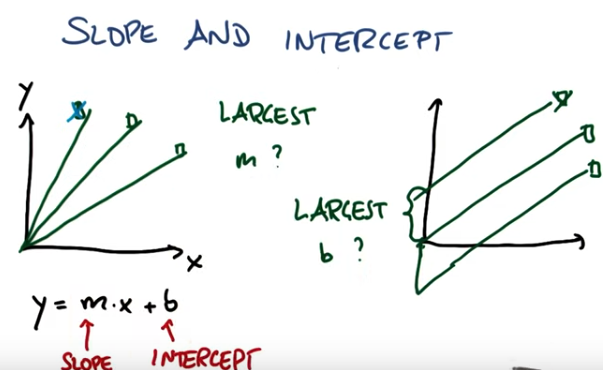 SLOPE AND INTERCEPT
Y
LARGEST
m ?
x
LARGEST
b ?
y = m·x + b
SLOPE
INTERCEPT